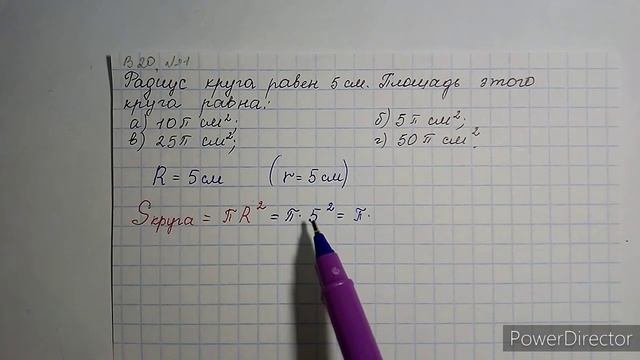 В 20, №1
Радиус круга равен 5 см. Площадь этого
круга равна:
а) 10π см²; б) 5π см²;
в) 25π см²; г) 50π см².
R = 5 см (r = 5 см)
Sкруга = πR² = π · 5² = π ·
PowerDirector